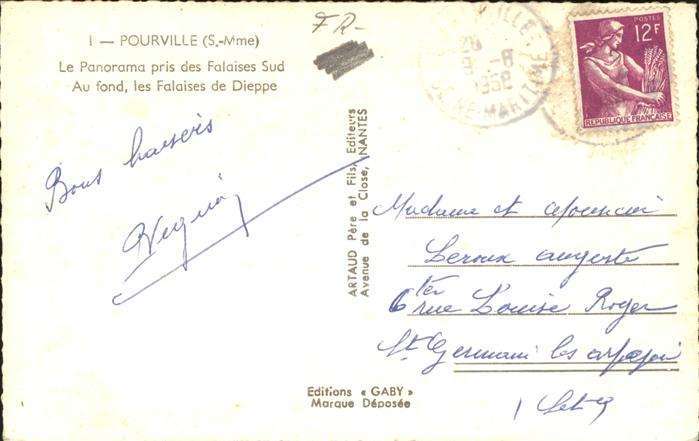 FR-
1 - POURVILLE (S.-Mme)
Le Panorama pris des Falaises Sud
Au fond, les Falaises de Dieppe
POSTES
12F
REPUBLIQUE FRANÇAISE
1958
MARITIME
Bons baisers
ARTAUD Père et Fils, Editeurs
Avenue de la Close, NANTES
Madame et Monsieur
Leroux auguste
6 ter rue Louise Roger
St Germain les arpajon
Editions « GABY »
Marque Déposée